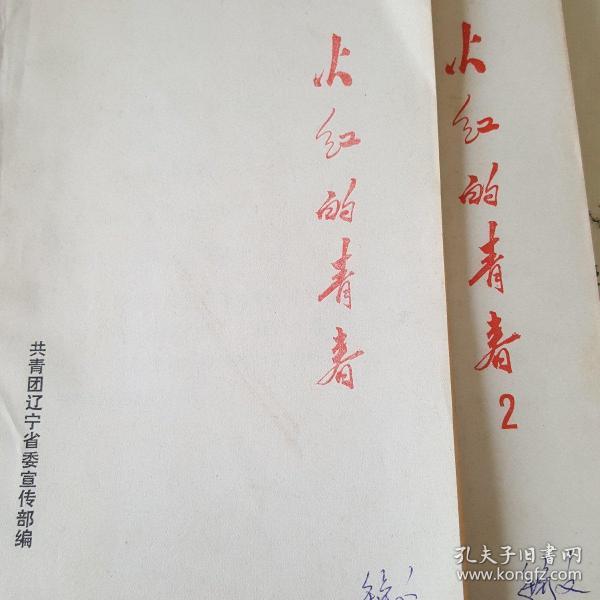 火红的青春
火红的青春
2
共青团辽宁省委宣传部编
孔夫子旧书网
www.kongfz.com